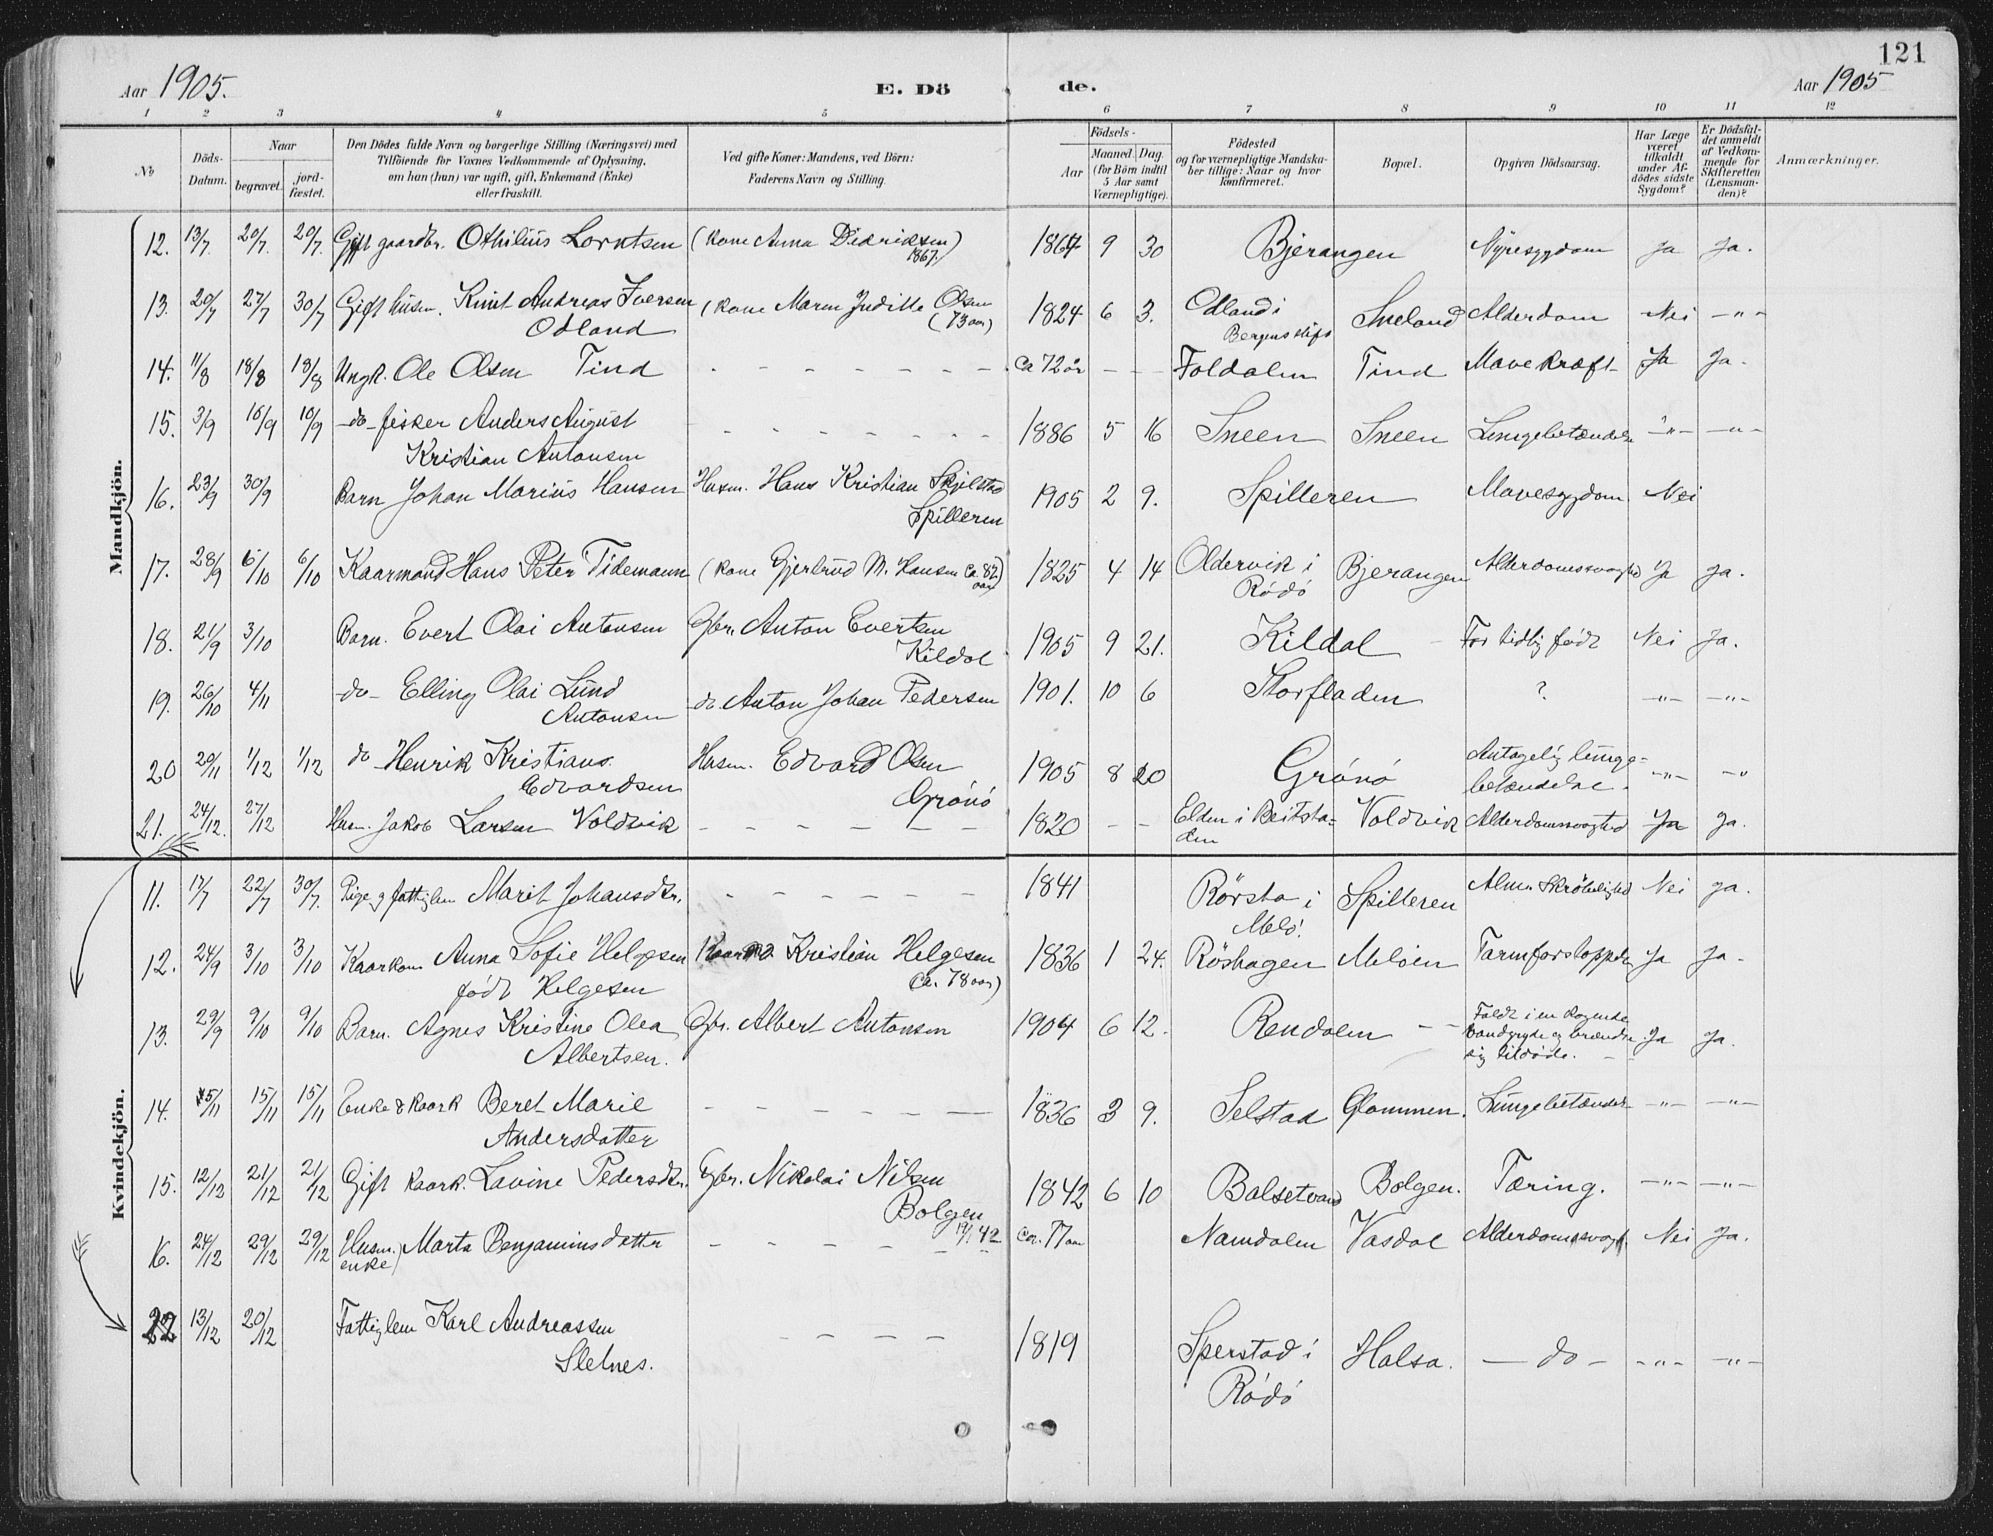 121
Aar 1905.
E. Dö
de.
Aar 1905
1 2 3 4 5 6 7 8 9 10 11 12
No
Döds-Datum.
Naar
begravet.
jordfæstet.
Den Dödes fulde Navn og borgerlige Stilling (Næringsvei) med
Tilföiende for Voxnes Vedkommende af Oplysning,
om han (hun) var ugift, gift, Enkemand (Enke)
eller fraskilt.
Ved gifte Koner: Mandens, ved Börn:
Faderens Navn og Stilling.
Födsels-
Aar
Maaned. Dag.
(for Börn indtil
5 Aar samt
Værnepligtige).
Födested
og for værnepligtige Mandskaber tillige: Naar og hvor
konfirmeret.
Bopæl.
Opgiven Dödsaarsag.
Har Læge
været
tilkaldt
under Afdödes sidste
Sygdom?
Er Dödsfaldet anmeldt
af Vedkommende for
Skifteretten
(Lensmanden)?
Anmærkninger.
Mandkjön.
12. 13/7. 20/7. 20/7. Gift gaardbr. Othilius Lorntsen (Kone Anna Didriksen) 1867. 1864 9 30 Bjerangen Nyresygdom Ja Ja.
13. 20/7 27/7 30/7 Gift husm. Knut Andreas Iversen (Kone Maren Juditte Olsen 1824 6 3. Odland i Sneland Alderdom Nei -"-
Odland (73 aar) Bergens stift
14. 11/8 18/8 18/8 Ungk. Ole Olsen Tind - - - - - - - ca 72 år - - Foldalen Tind Mavekræft Ja Ja.
15. 3/9 10/9 10/9 -do- fisker Anders August - - - - - - 1886 5 16 Sneen Sneen Lungebetændelse -"- -"-
Kristian Antonsen
16. 23/9 30/9 Barn Johan Marius Hansen Husm. Hans Kristian Skjelstad 1905 2 9. Spilleren Mavesygdom Nei
Spilleren
17. 28/9 6/10 6/10 Kaarmand Hans Peter Tidemann (Kone Gjertrud M. Hansen ca 82 aar) 1825 4 14 Oldervik i Bjerangen Alderdomssvaghed Ja Ja.
Rödö
18. 21/9 3/10 Barn. Evert Olai Antonsen Gbr. Anton Evertsen 1905 9 21. Kildal - For tidlig født Nei Ja.
Kildal
19. 26/10 4/11 -do- Elling Olai Lund do. Anton Johan Pedersen 1901. 10 6 Storfladen ? -"- -"-
Antonsen
20 20/11 1/12 1/12 do Henrik Kristians. Husm. Edvard Olsen 1905 8 20 Grönö Antagelig lunge= -"- -"
Edvardsen Grönö betændelse.
21. 24/12. 27/12 Husm. Jakob Larsen Voldvik - - - - - - 1820 - - Elden i Beitsta= Voldvik Alderdomssvaghed Ja Ja.
den
Kvindekjön.
11. 17/7 22/7 30/7. Pige og fattiglem Marit Johansdtr. - - - - - 1841 Rörsta i Spilleren Alm. Skrøbelighed Nei Ja.
Melö.
12. 24/9 3/10 3/10 Kaarkone Anna Sofie Helgesen Kaarmd. Kristian Helgesen 1836 1 24. Röshagen Meløen Tarmforstoppelse Ja Ja.
født Helgesen ca. 78 aar)
13. 29/9 9/10 9/10 Barn. Agnes Kristine Olea Gbr. Albert Antonsen 1904 6 12. Rendalen - - Faldt i en kogende
Albertsen. vandgryde og brændte Ja Ja.
sig tildøde.
14. 5/11 15/11 15/11 Enke & kaark Beret Marie - - - - - 1836 3 9. Selstad Glommen. Lungebetændelse -"- -"-
Andersdatter
15. 12/12 21/12 21/12 Gift kaark. Lavine Pedersdtr. Gbr. Nikolai Nilsen 1842 6 10 Balsetvand Bolgen. Tæring. -"- -"-
Bolgen
19/1 42
16. 24/12 29/12 29/12 Husm. Marta Benjaminsdatter - - - - - ca. 77 aar Namdalen Vasdal Alderdomssvagh. Nei Ja.
enke
22 13/12 20/12 Fattiglem Karl Andreassen - - - - 1819 Sperstad i Halsa. - do - -"- -"-
Sletnes. Rödö